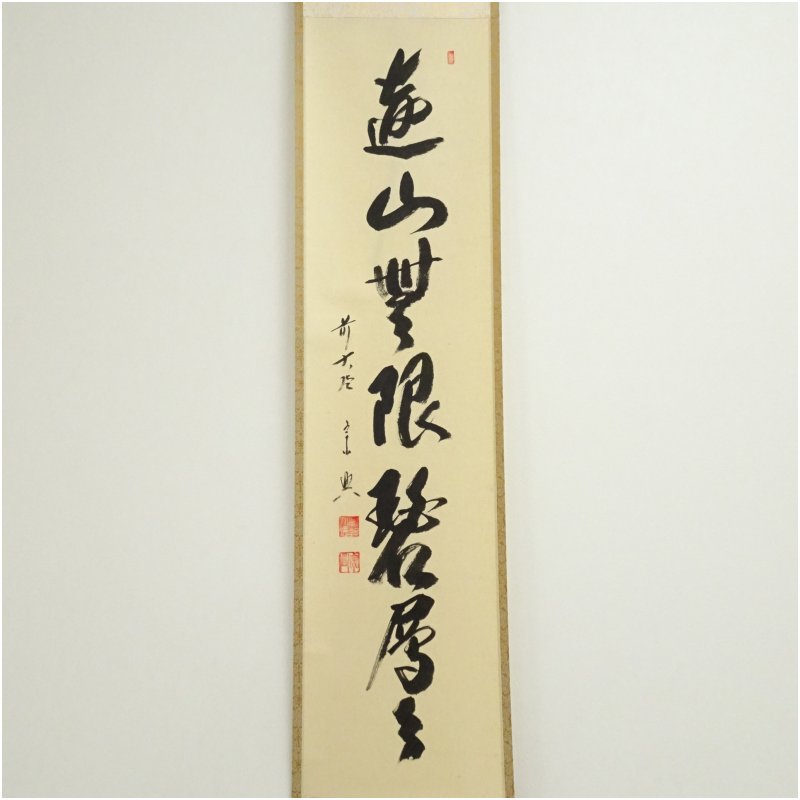 遠山無限碧層々
前大徳 宗興